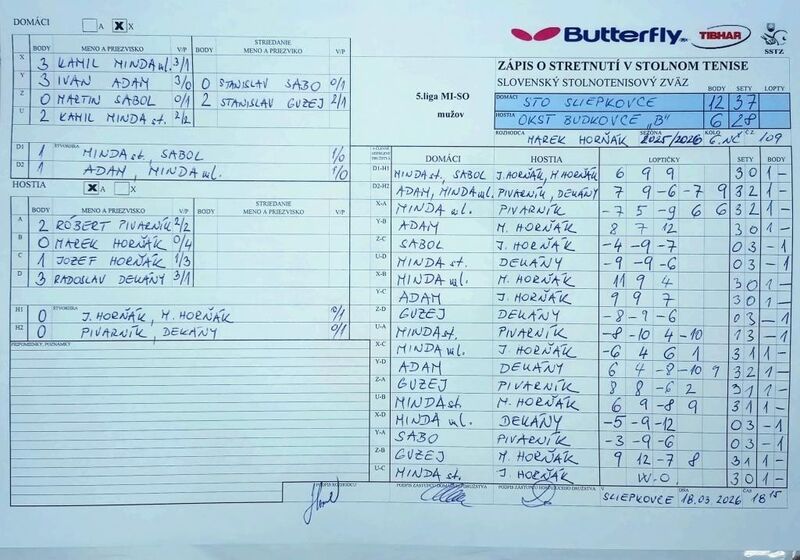 DOMÁCI A X X
Butterfly TIBHAR SSTZ
BODY MENO A PRIEZVISKO V/P BODY STRIEDANIE MENO A PRIEZVISKO V/P
X 3 KAMIL MINDA ml. 3/1
Y 3 IVAN ADAM 3/0 0 STANISLAV SABO 0/1
Z 0 MARTIN SABOL 0/1 2 STANISLAV GUZEJ 2/1
U 2 KAMIL MINDA st. 2/2
ZÁPIS O STRETNUTÍ V STOLNOM TENISE
SLOVENSKÝ STOLNOTENISOVÝ ZVÄZ
5.liga MI-SO
mužov
BODY SETY LOPTY
DOMÁCI STO SLIEPKOVCE 12 37
HOSTIA OKST BUDKOVCE "B" 6 28
ROZHODCA MAREK HORŇÁK SEZÓNA 2025/2026 KOLO 6.NČ Č.Z. 109
D1 ŠTVORHRA 1 MINDA st., SABOL 1/0
D2 1 ADAM, MINDA ml. 1/0
HOSTIA X A X
BODY MENO A PRIEZVISKO V/P BODY STRIEDANIE MENO A PRIEZVISKO V/P
A 2 RÓBERT PIVARNÍK 2/2
B 0 MAREK HORŇÁK 0/4
C 1 JOZEF HORŇÁK 1/3
D 3 RADOSLAV DEKÁNY 3/1
H1 ŠTVORHRA 0 J. HORŇÁK, M. HORŇÁK 0/1
H2 0 PIVARNÍK, DEKÁNY 0/1
PRIPOMIENKY, POZNÁMKY
DOMÁCI HOSTIA LOPTIČKY SETY BODY
D1-H1 MINDA st., SABOL J. HORŇÁK, M HORŇÁK 6 9 9 3 0 1 -
D2-H2 ADAM, MINDA ml. PIVARNÍK, DEKÁNY 7 9 -6 -7 9 3 2 1 -
X-A MINDA ml. PIVARNÍK -7 5 -9 6 6 3 2 1 -
Y-B ADAM M. HORŇÁK 8 7 12 3 0 1 -
Z-C SABOL J. HORŇÁK -4 -9 -7 0 3 - 1
U-D MINDA st. DEKÁNY -9 -9 -6 0 3 - 1
X-B MINDA ml. M. HORŇÁK 11 9 4 3 0 1 -
Y-C ADAM J. HORŇÁK 9 9 7 3 0 1 -
Z-D GUZEJ DEKÁNY -8 -9 -6 0 3 - 1
U-A MINDA st. PIVARNÍK -8 -10 4 -10 1 3 - 1
X-C MINDA ml. J. HORŇÁK -6 4 6 1 3 1 1 -
Y-D ADAM DEKÁNY 6 4 -8 -10 9 3 2 1 -
Z-A GUZEJ PIVARNÍK 8 8 -6 2 3 1 1 -
U-B MINDA st. M. HORŇÁK 6 9 -8 9 3 1 1 -
X-D MINDA ml. DEKÁNY -5 -9 -12 0 3 - 1
Y-A SABO PIVARNÍK -3 -9 -6 0 3 - 1
Z-B GUZEJ M. HORŇÁK 9 12 -7 8 3 1 1 -
U-C MINDA st. J. HORŇÁK W.O. 3 0 1 -
PODPIS ROZHODCU PODPIS ZÁSTUPCU DOMÁCEHO DRUŽSTVA PODPIS ZÁSTUPCU HOSŤUJÚCEHO DRUŽSTVA V SLIEPKOVCE DŇA 18.03.2026 ČAS 18 15